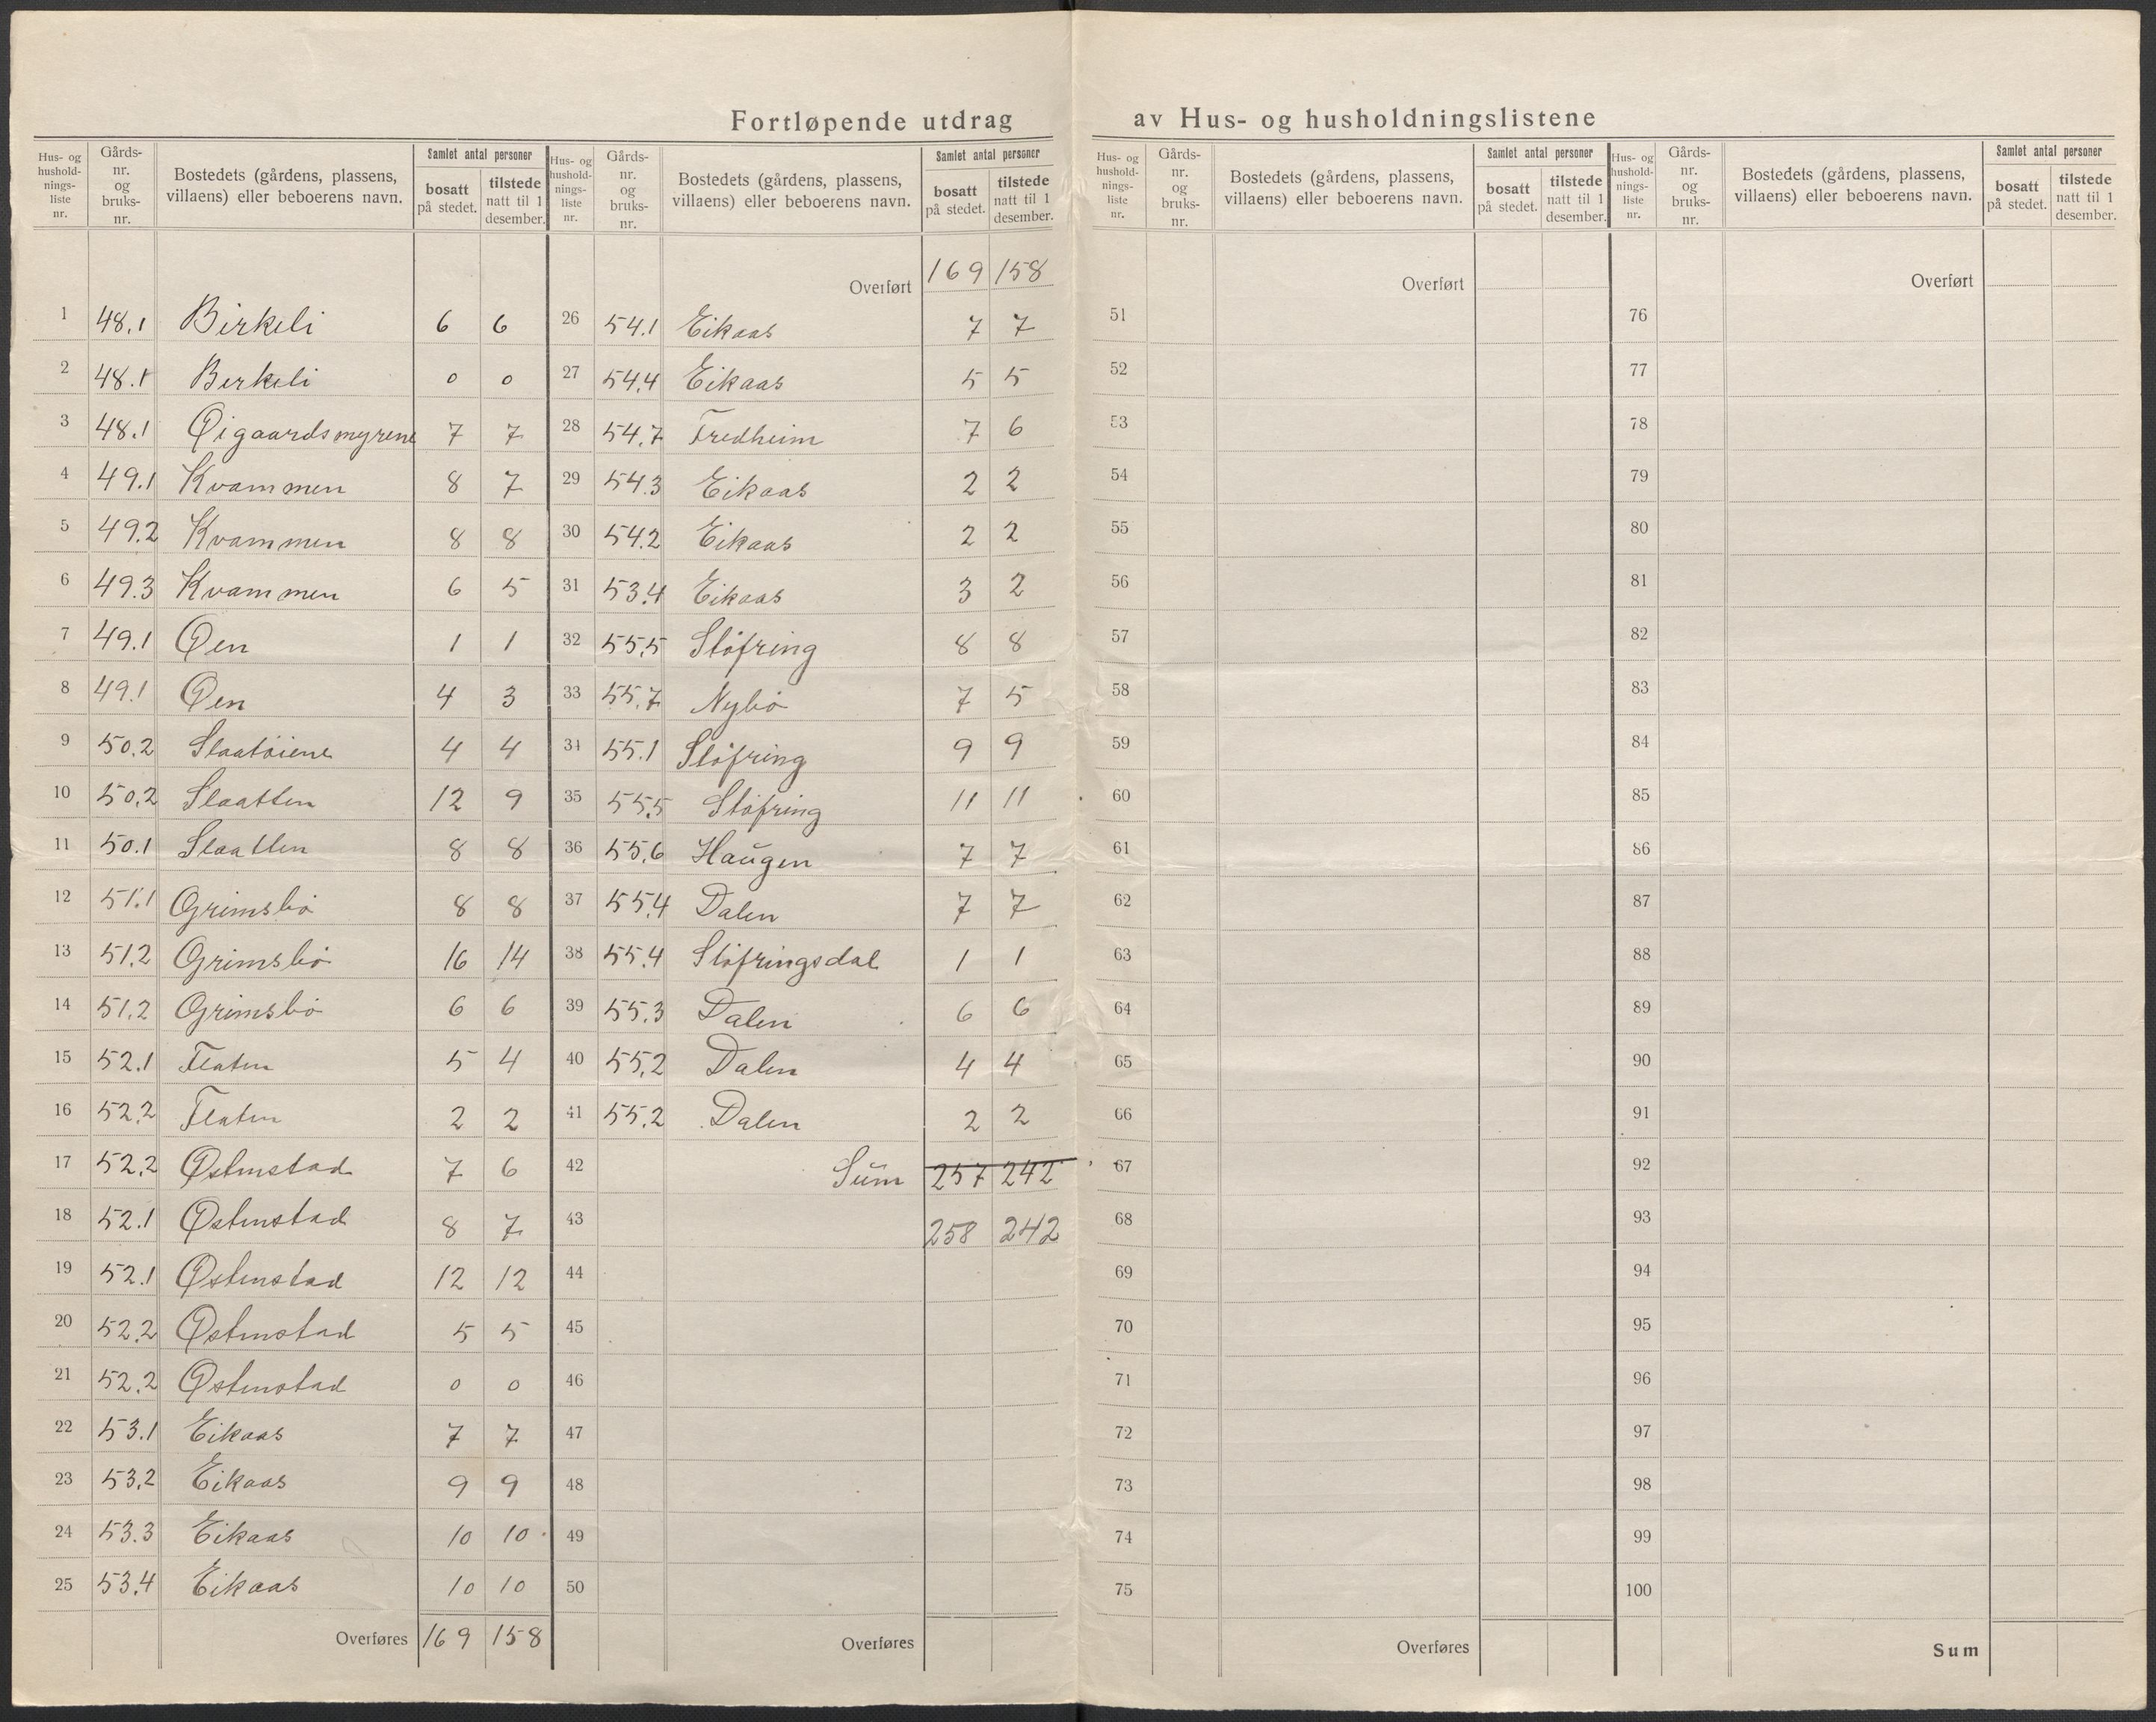 Fortløpende utdrag av Hus- og husholdningslistene
Hus- og hushold-nings-liste nr. Gårds-nr. og bruks-nr. Bostedets (gårdens, plassens, villaens) eller beboerens navn. Samlet antal personer bosatt på stedet. tilstede natt til 1 desember.
1 48.1 Birkeli 6 6
2 48.1 Birkeli 0 0
3 48.1 Øigaardsmyrene 7 7
4 49.1 Kvammen 8 7
5 49.2 Kvammen 8 8
6 49.3 Kvammen 6 5
7 49.1 Øen 1 1
8 49.1 Øen 4 3
9 50.2 Slaatöiene 4 4
10 50.2 Slaatten 12 9
11 50.1 Slaatten 8 8
12 51.1 Grimsbö 8 8
13 51.2 Grimsbö 16 14
14 51.2 Grimsbö 6 6
15 52.1 Flaten 5 4
16 52.2 Flaten 2 2
17 52.2 Østenstad 7 6
18 52.1 Østenstad 8 7
19 52.1 Østenstad 12 12
20 52.2 Østenstad 5 5
21 52.2 Østenstad 0 0
22 53.1 Eikaas 7 7
23 53.2 Eikaas 9 9
24 53.3 Eikaas 10 10
25 53.4 Eikaas 10 10
Overføres 169 158
Hus- og hushold-nings-liste nr. Gårds-nr. og bruks-nr. Bostedets (gårdens, plassens, villaens) eller beboerens navn. Samlet antal personer bosatt på stedet. tilstede natt til 1 desember.
Overført 169 158
26 54.1 Eikaas 7 7
27 54.4 Eikaas 5 5
28 54.7 Fredheim 7 6
29 54.3 Eikaas 2 2
30 54.2 Eikaas 2 2
31 53.4 Eikaas 3 2
32 55.5 Slöfring 8 8
33 55.7 Nybö 7 5
34 55.1 Slöfring 9 9
35 55.5 Slöfring 11 11
36 55.6 Haugen 7 7
37 55.4 Dalen 7 7
38 55.4 Slöfringsdal 1 1
39 55.3 Dalen 6 6
40 55.2 Dalen 4 4
41 55.2 Dalen 2 2
42 Sum 257 242
43 258 242
44
45
46
47
48
49
50
Overføres
Hus- og hushold-nings-liste nr. Gårds-nr. og bruks-nr. Bostedets (gårdens, plassens, villaens) eller beboerens navn. Samlet antal personer bosatt på stedet. tilstede natt til 1 desember.
Overført
51
52
53
54
55
56
57
58
59
60
61
62
63
64
65
66
67
68
69
70
71
72
73
74
75
Overføres
Hus- og hushold-nings-liste nr. Gårds-nr. og bruks-nr. Bostedets (gårdens, plassens, villaens) eller beboerens navn. Samlet antal personer bosatt på stedet. tilstede natt til 1 desember.
Overført
76
77
78
79
80
81
82
83
84
85
86
87
88
89
90
91
92
93
94
95
96
97
98
99
100
Sum